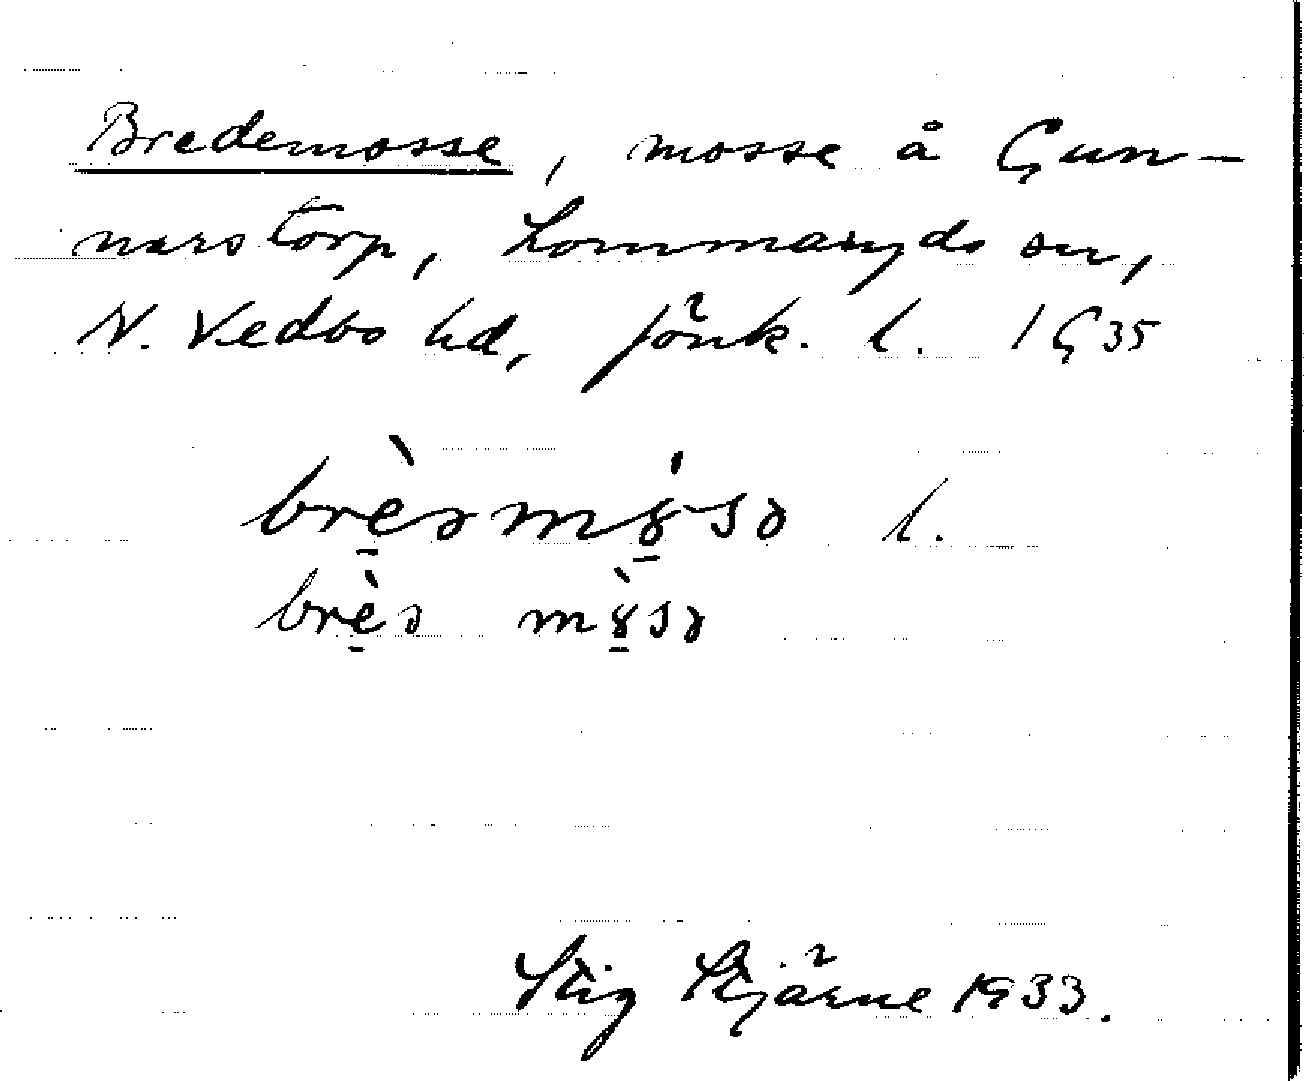 Bredemosse, mosse å Gun-
narstorp, Lommaryds sn,
N. Vedbo hd, Jönk. l. 1935
brèəmȣ́sə l.
brèə mȣ̀sə
Stig Stjärne 1933.